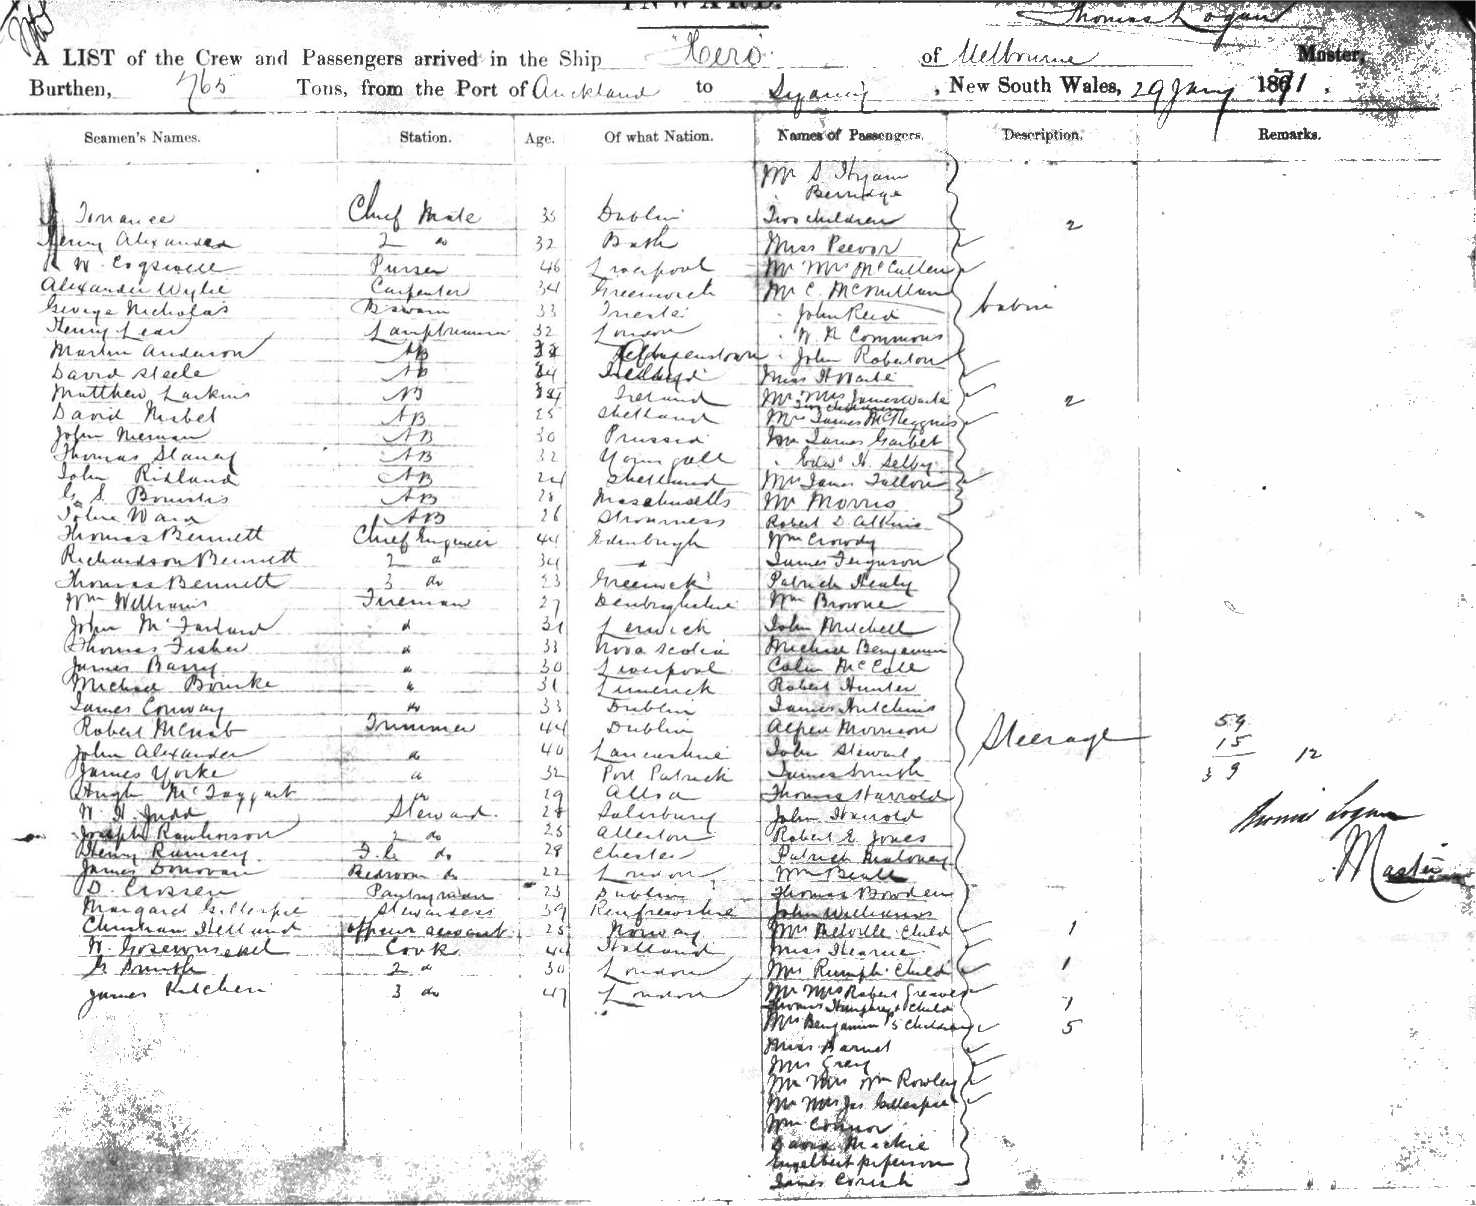 INWARD.
Thomas Logan
A LIST of the Crew and Passengers arrived in the Ship "Hero" of Melbourne Master,
Burthen, 765 Tons, from the Port of Auckland to Sydney, New South Wales, 29 Jany 1871.
Seamen's Names. Station. Age. Of what Nation. Names of Passengers. Description. Remarks.
Mr S. Hyam
Berridge
Torrance Chief Mate 35 Dublin Two children 2
Henry Alexander 2 do 32 Bath Miss Peevor
W. Cogswell Purser 46 Liverpool Mr Mrs McCullen
Alexander Wylie Carpenter 34 Greenwich Mr C. McMillan
George Nicholas Bswain 33 Trieste John Reid Cabin
Henry Lear Lamptrimmer 32 London W. N Commons
Martin Anderson AB John Roberton
David Steele AB Miss H Waite
Matthew Larkins AB Ireland Mr Mrs James Waite 2
Two children
David Nisbet AB 25 Shetland Mrs James McHeggnis
John Nieman AB 30 Prussia James Garbet
Thomas Slaney AB 32 Youngall Edwd H. Selby
John Ridland AB 24 Shetland Mrs James Fallon
G. S. AB 28 Massachusetts Mr Morris
John Ward AB 26 Stromness Robert D. Atkins
Thomas Bennett Chief Engineer 44 Edinburgh Wm Crowdy
Richardson Bennett 2 do 34 " James Ferguson
Thomas Bennett 3 do 23 Greenock Patrick Healy
Wm Williams Fireman 27 Denbighshire Wm Browne
John McFarland do 31 Lerwick John Mitchell
Thomas Fisher do 33 Nova Scotia Michael Benjamin
James Barry do 30 Liverpool Colin McCall
Michael Bourke do 31 Limerick Robert Hunter
James Conway do 33 Dublin James Hutchins
Robert McNab Trimmer 44 Dublin Alfred Morrison Steerage 59
John Alexander do 40 Lancashire John Stewart 15 12
James Yorke do 32 Port Patrick James Smith 39
Hugh McTaggart do 29 Alloa Thomas Harrold
W. H. Judd Steward. 28 Salisbury John Harrold Thomas Logan
Joseph Rawlinson 2 do 25 Allerton Robert E. Jones
Henry Rumsey F.C. do 28 Chester Patrick Maloney Master
James Donovan Bedroom do 22 London Wm Beall
D. Crossen Pantryman 23 Dublin Thomas Bowden
Margaret Gillespie Stewardess 39 Renfrewshire John Williams
Christian Helland officers servant 25 Norway Mrs Melville. Child 1
W. Cook 44 Holland Miss Hearne
G. Smith 2 do 30 London Mrs Rumph. Child 1
James Kitchen 3 do 47 London Mr Mrs Robert Greaves
Thomas Humphreys Child 1
Mrs Benjamin 5 children 5
Miss Barnet
Mrs Grey
Mr Mrs Wm Rowley
Mr Mrs Jas Gillespie
Wm Connor
David Mackie
Engelbert Jefferson
James Corish